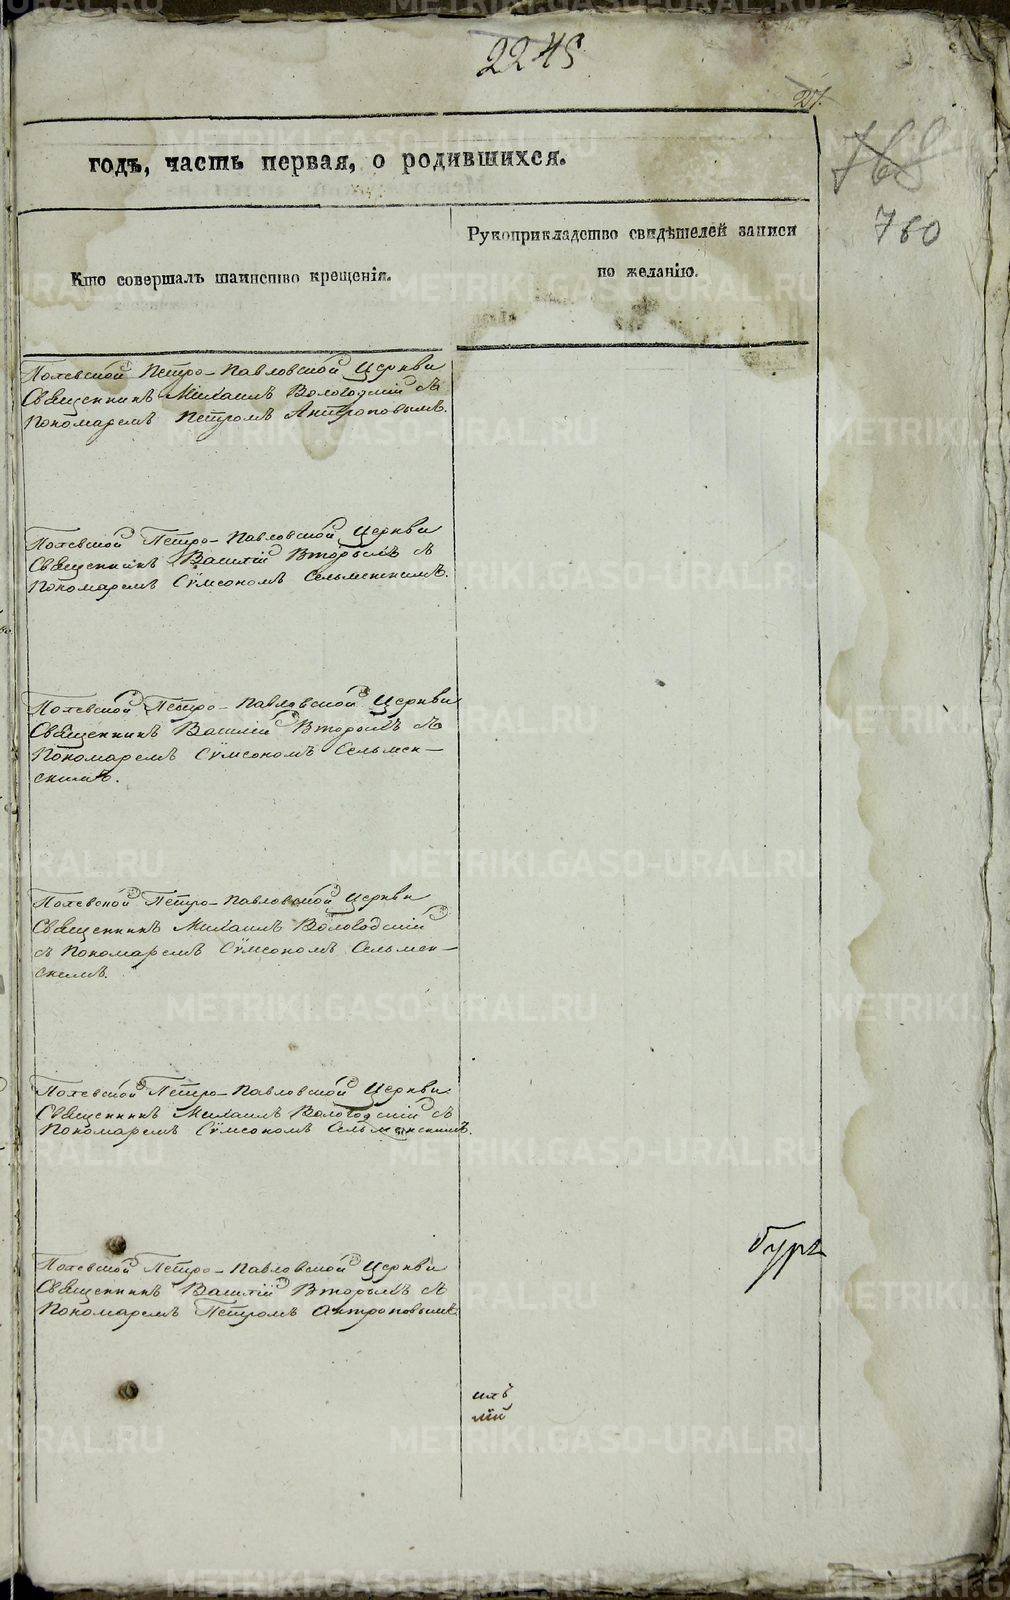 2245
27.
768
760
годъ, часть первая, о родившихся.
Кто совершалъ таинство крещенія.
Рукоприкладство свидѣтелей записи
по желанію.
Полевской Петро-Павловской Церкви
Священникъ Михаилъ Вологодскій съ
Пономаремъ Петромъ Антроповымъ.
Полевской Петро-Павловской Церкви
Священникъ Василій Вторыхъ съ
Пономаремъ Сѵмеономъ Сельменскимъ.
Полевской Петро-Павловской Церкви
Священникъ Василій Вторыхъ съ
Пономаремъ Сѵмеономъ Сельмен-
скимъ.
Полевской Петро-Павловской Церкви
Священникъ Михаилъ Вологодскій
съ Пономаремъ Сѵмеономъ Сельмен-
скимъ.
Полевской Петро-Павловской Церкви
Священникъ Михаилъ Вологодскій съ
Пономаремъ Сѵмеономъ Сельменскимъ.
бург
Полевской Петро-Павловской Церкви
Священникъ Василій Вторыхъ съ
Пономаремъ Петромъ Антроповымъ
METRIKI.GASO-URAL.RU